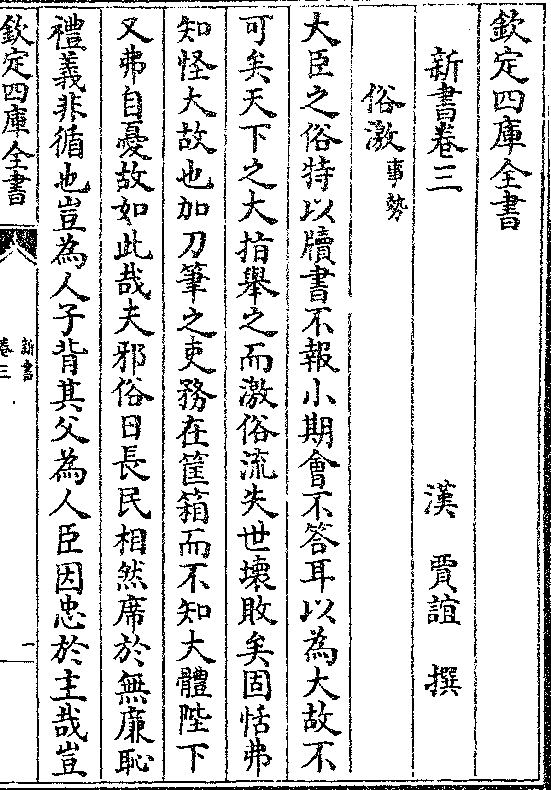 欽定四庫全書
新書卷三
漢 賈誼 撰
俗激事勢
大臣之俗特以牘書不報小期會不答耳以為大故不
可矣天下之大指舉之而激俗流失世壞敗矣固恬弗
知怪大故也加刀筆之吏務在筐箱而不知大體陛下
又弗自憂故如此哉夫邪俗日長民相然席於無廉恥
禮義非循也豈為人子背其父為人臣因忠於主哉豈
欽定四庫全書
新書
卷三
一